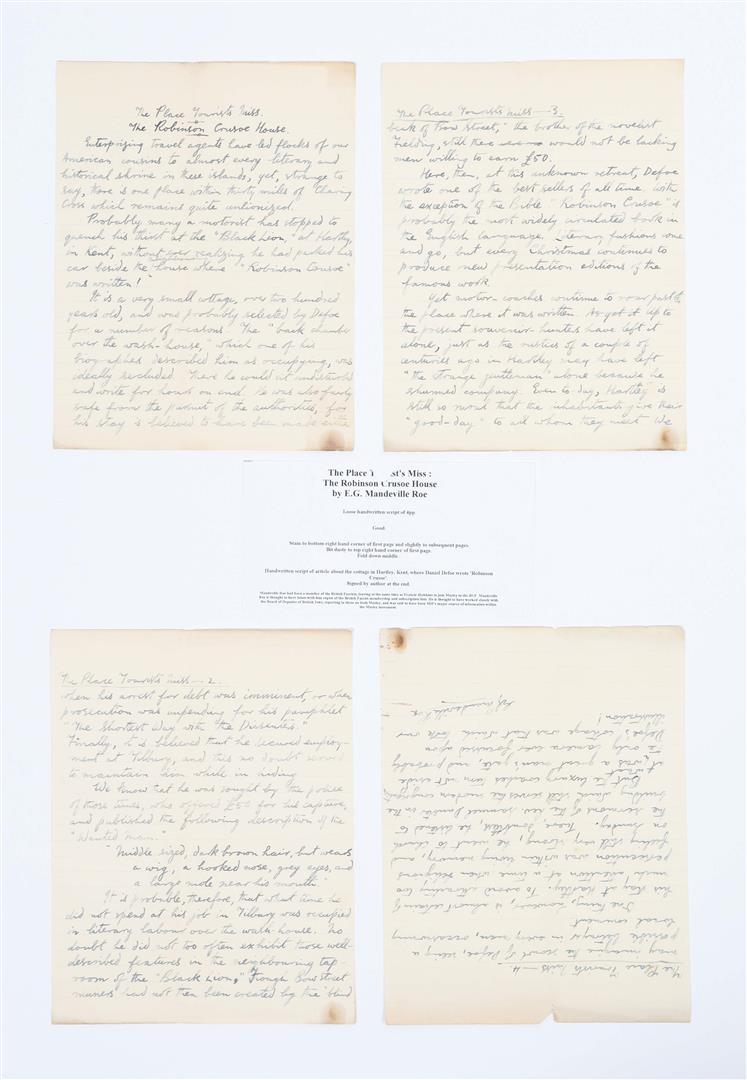 The Place Tourists Miss.
The Robinson Crusoe House.
Enterprizing travel agents have led flocks of our
American cousins to almost every literary and
historical shrine in these islands, yet, strange to
say, there is one place within thirty miles of Charing
Cross which remains quite unlionized.
Probably many a motorist has stopped to
quench his thirst at the "Black Lion," at Hartley,
in Kent, without ever realizing he had parked his
car beside the house where "Robinson Crusoe"
was written!
It is a very small cottage, over two hundred
years old, and was probably selected by Defoe
for a number of reasons. The "back chamber
over the wash-house," which one of his
biographers described him as occupying, was
ideally secluded. There he could sit undisturbed
and write for hours on end. He was also fairly
safe from the pursuit of the authorities, for
his stay is believed to have been made either
The Place Tourists Miss — 2.
when his arrest for debt was imminent, or when
prosecution was impending for his pamphlet
"The Shortest Way with the Dissenters."
Finally, it is believed that he secured employ-
ment at Tilbury, and this no doubt served
to maintain him while in hiding.
We know that he was sought by the police
of those times, who offered £50 for his capture,
and published the following description of the
"Wanted man."
"Middle sized, dark brown hair, but wears
a wig, a hooked nose, grey eyes, and
a large mole near his mouth."
It is probable, therefore, that what time he
did not spend at his job in Tilbury was occupied
in literary labour over the wash-house. No
doubt he did not too often exhibit those well-
described features in the neighbouring tap-
room of the "Black Lion," Though Bow Street
runners had not then been created by the "blind
The Place Tourists Miss — 3.
beak of Bow Street," the brother of the novelist
Fielding, still there would not be lacking
men willing to earn £50.
Here, then, at this unknown retreat, Defoe
wrote one of the best sellers of all time. With
the exception of the Bible "Robinson Crusoe" is
probably the most widely circulated book in
the English language. Literary fashions come
and go, but every Christmas continues to
produce new presentation editions of the
famous work.
Yet motor-coaches continue to roar past
the place where it was written. As yet up to
the present souvenir-hunters have left it
alone, just as the rustics of a couple of
centuries ago in Hartley may have left
"the strange gentleman" alone because he
shunned company. Even to-day, Hartley is
still so rural that the inhabitants give their
"good-day" to all whom they meet. We
The Place Tourists Miss — 4.
may imagine the dread of Defoe, seeing a
possible betrayer in every man, occasioning
social
his stay at Hartley. To avoid attracting too
much attention at a time when religious
persecution was within living memory, and
feeling still very strong, he went to church
on Sunday. There, doubtless, he listened to
the sermons of the Rev.
building which still serves the modern
But the luxury coaches turn not aside
Defoe's cottage was that which took our
illustration!
The Place T st's Miss :
The Robinson Crusoe House
by E.G. Mandeville Roe
Loose handwritten script of 4pp.
Good
Stain to bottom right hand corner of first page and slightly to subsequent pages.
Bit dusty to top right hand corner of first page.
Fold down middle
Handwritten script of article about the cottage in Hartley, Kent, where Daniel Defoe wrote 'Robinson
Crusoe'.
Signed by author at the end.